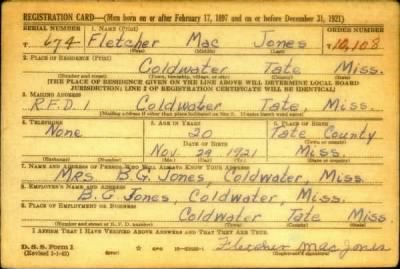 REGISTRATION CARD—(Men born on or after February 17, 1897 and on or before December 31, 1921)
SERIAL NUMBER 1. NAME (Print) ORDER NUMBER
T 674 Fletcher Mac Jones 10,108
(First) (Middle) (Last)
2. PLACE OF RESIDENCE (Print)
Coldwater Tate Miss.
(Number and street) (Town, township, village, or city) (County) (State)
[THE PLACE OF RESIDENCE GIVEN ON THE LINE ABOVE WILL DETERMINE LOCAL BOARD
JURISDICTION; LINE 2 OF REGISTRATION CERTIFICATE WILL BE IDENTICAL]
3. MAILING ADDRESS
R.F.D. 1 Coldwater Tate, Miss.
[Mailing address if other than place indicated on line 2. If same insert word same]
4. TELEPHONE 5. AGE IN YEARS 6. PLACE OF BIRTH
None 20 Tate County
DATE OF BIRTH
Nov 29 1921 Miss.
(Exchange) (Number) (Mo.) (Day) (Yr.)
7. NAME AND ADDRESS OF PERSON WHO WILL ALWAYS KNOW YOUR ADDRESS
Mrs. B.G. Jones, Coldwater, Miss.
8. EMPLOYER'S NAME AND ADDRESS
B.G. Jones, Coldwater, Miss.
9. PLACE OF EMPLOYMENT OR BUSINESS
Coldwater Tate Miss
(Number and street or R. F. D. number) (Town) (County) (State)
I AFFIRM THAT I HAVE VERIFIED ABOVE ANSWERS AND THAT THEY ARE TRUE.
D. S. S. Form 1 Fletcher Mac Jones